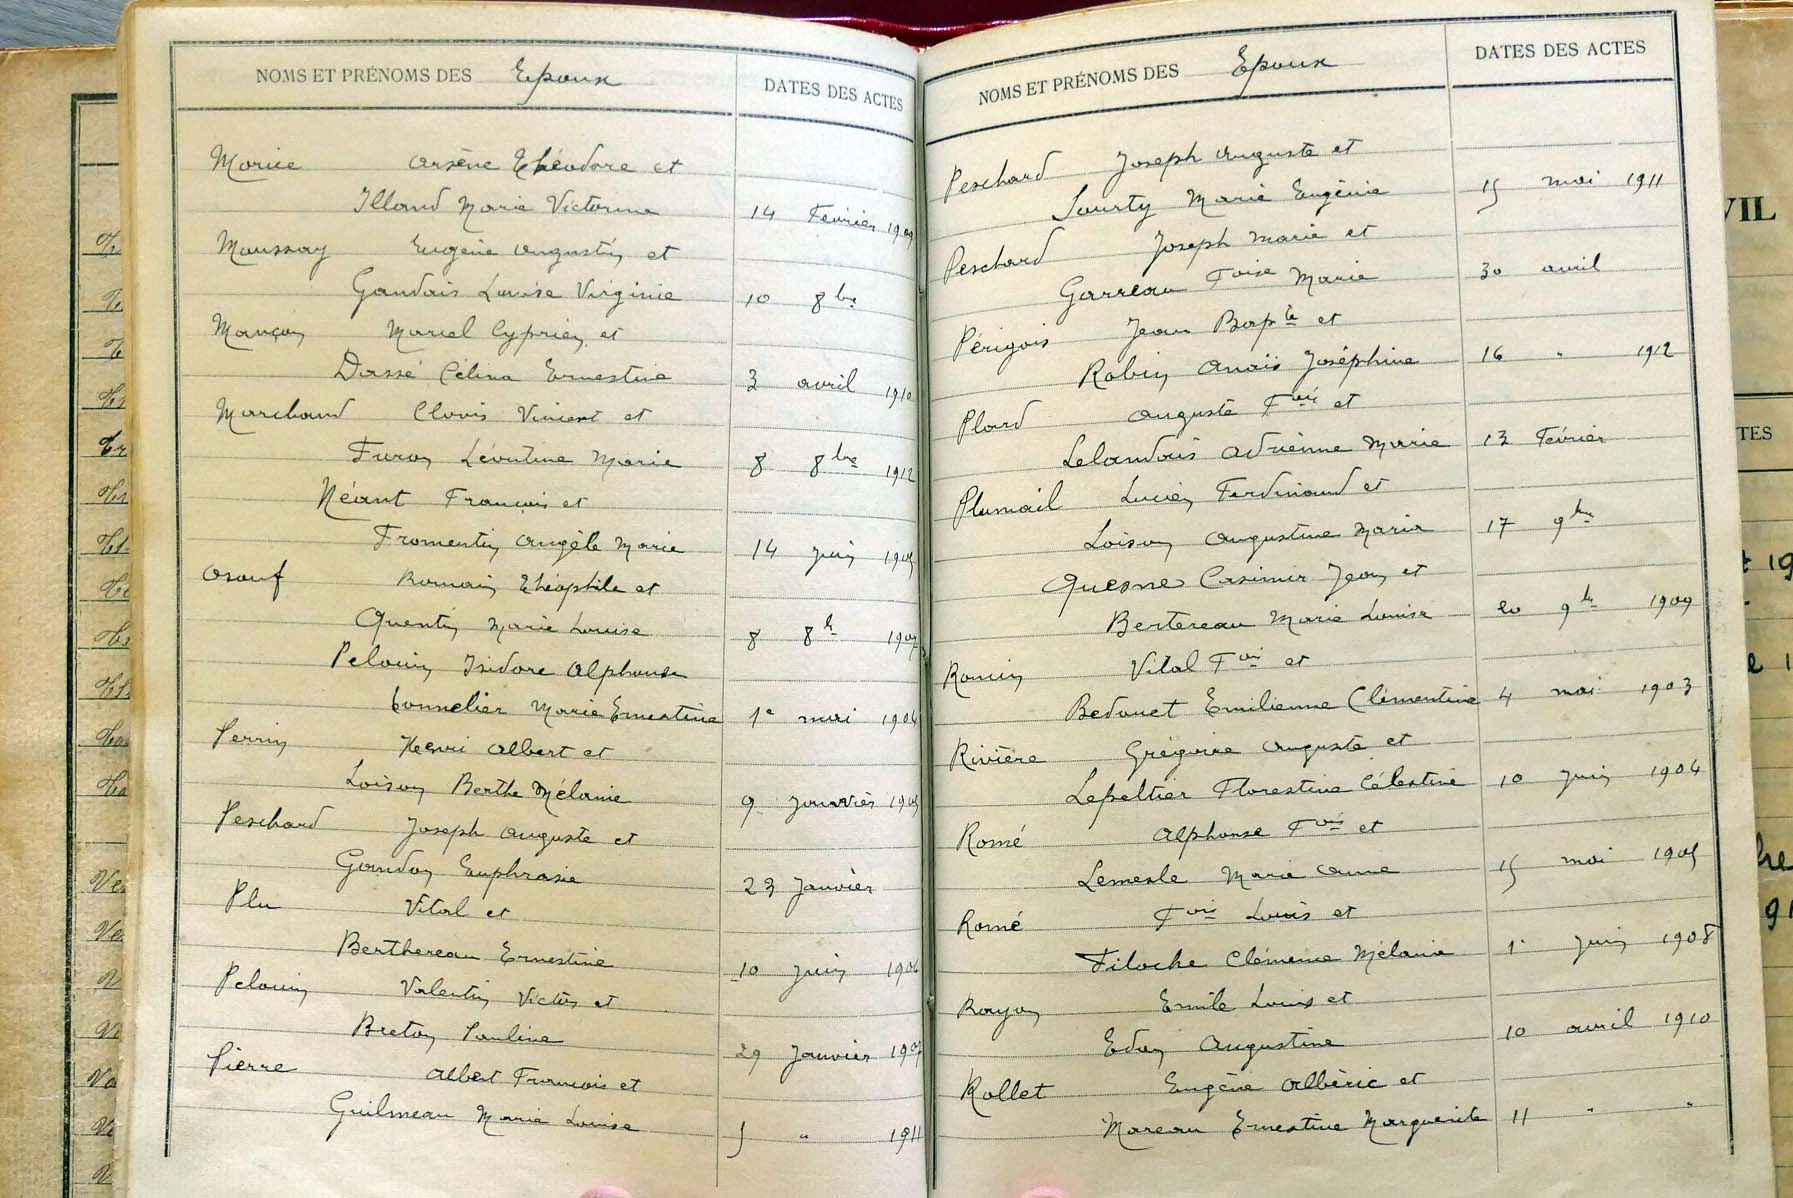 NOMS ET PRÉNOMS DES Epoux DATES DES ACTES
Morice Arsène Théodore et
Illand Marie Victorine 14 Février 1909
Maussay Eugène Augustin et
Gandais Louise Virginie 10 8bre
Mançon Marcel Cyprien et
Dassé Célina Ernestine 3 avril 1910
Marchand Clovis Vincent et
Furon Léontine Marie 8 8bre 1912
Néant François et
Fromentin Angèle Marie 14 juin 1905
Osouf Romain Théophile et
Quentin Marie Louise 8 8b 1907
Pelouin Isidore Alphonse
Lonnelier Marie Ernestine 1e mai 1904
Perrin Henri Albert et
Loison Berthe Mélanie 9 Janvier 1905
Peschard Joseph Auguste et
Gandon Euphrasie 23 Janvier
Plu Vital et
Berthereau Ernestine 10 Juin 1906
Pelouin Valentin Victor et
Breton Pauline 29 Janvier 1907
Pierre Albert François et
Guilmeau Marie Louise 5 " 1911
NOMS ET PRÉNOMS DES Epoux DATES DES ACTES
Peschard Joseph Auguste et
Sourty Marie Eugénie 15 mai 1911
Peschard Joseph Marie et
Garreau Foise Marie 30 avril
Périgois Jean Bapte et
Robin Anaïs Joséphine 16 " 1912
Plard Auguste Fois et
Lelandais Adrienne Marie 13 Février
Plumail Lucien Ferdinand et
Loison Augustine Maria 17 9bre
Quesne Casimir Jean et
Bertereau Marie Louise 20 9b 1909
Romin Vital Foi et
Bedouet Emilienne Clémentine 4 mai 1903
Rivière Grégoire Auguste et
Lepeltier Florestine Célestine 10 Juin 1904
Romé Alphonse Fois et
Lemesle Marie Anne 15 mai 1905
Romé Fois Louis et
Filoche Clémence Mélanie 1e Juin 1908
Royon Emile Louis et
Edon Augustine 10 avril 1910
Rollet Eugène Albéric et
Mareau Ernestine Marguerite 11 " "
VIL
TES